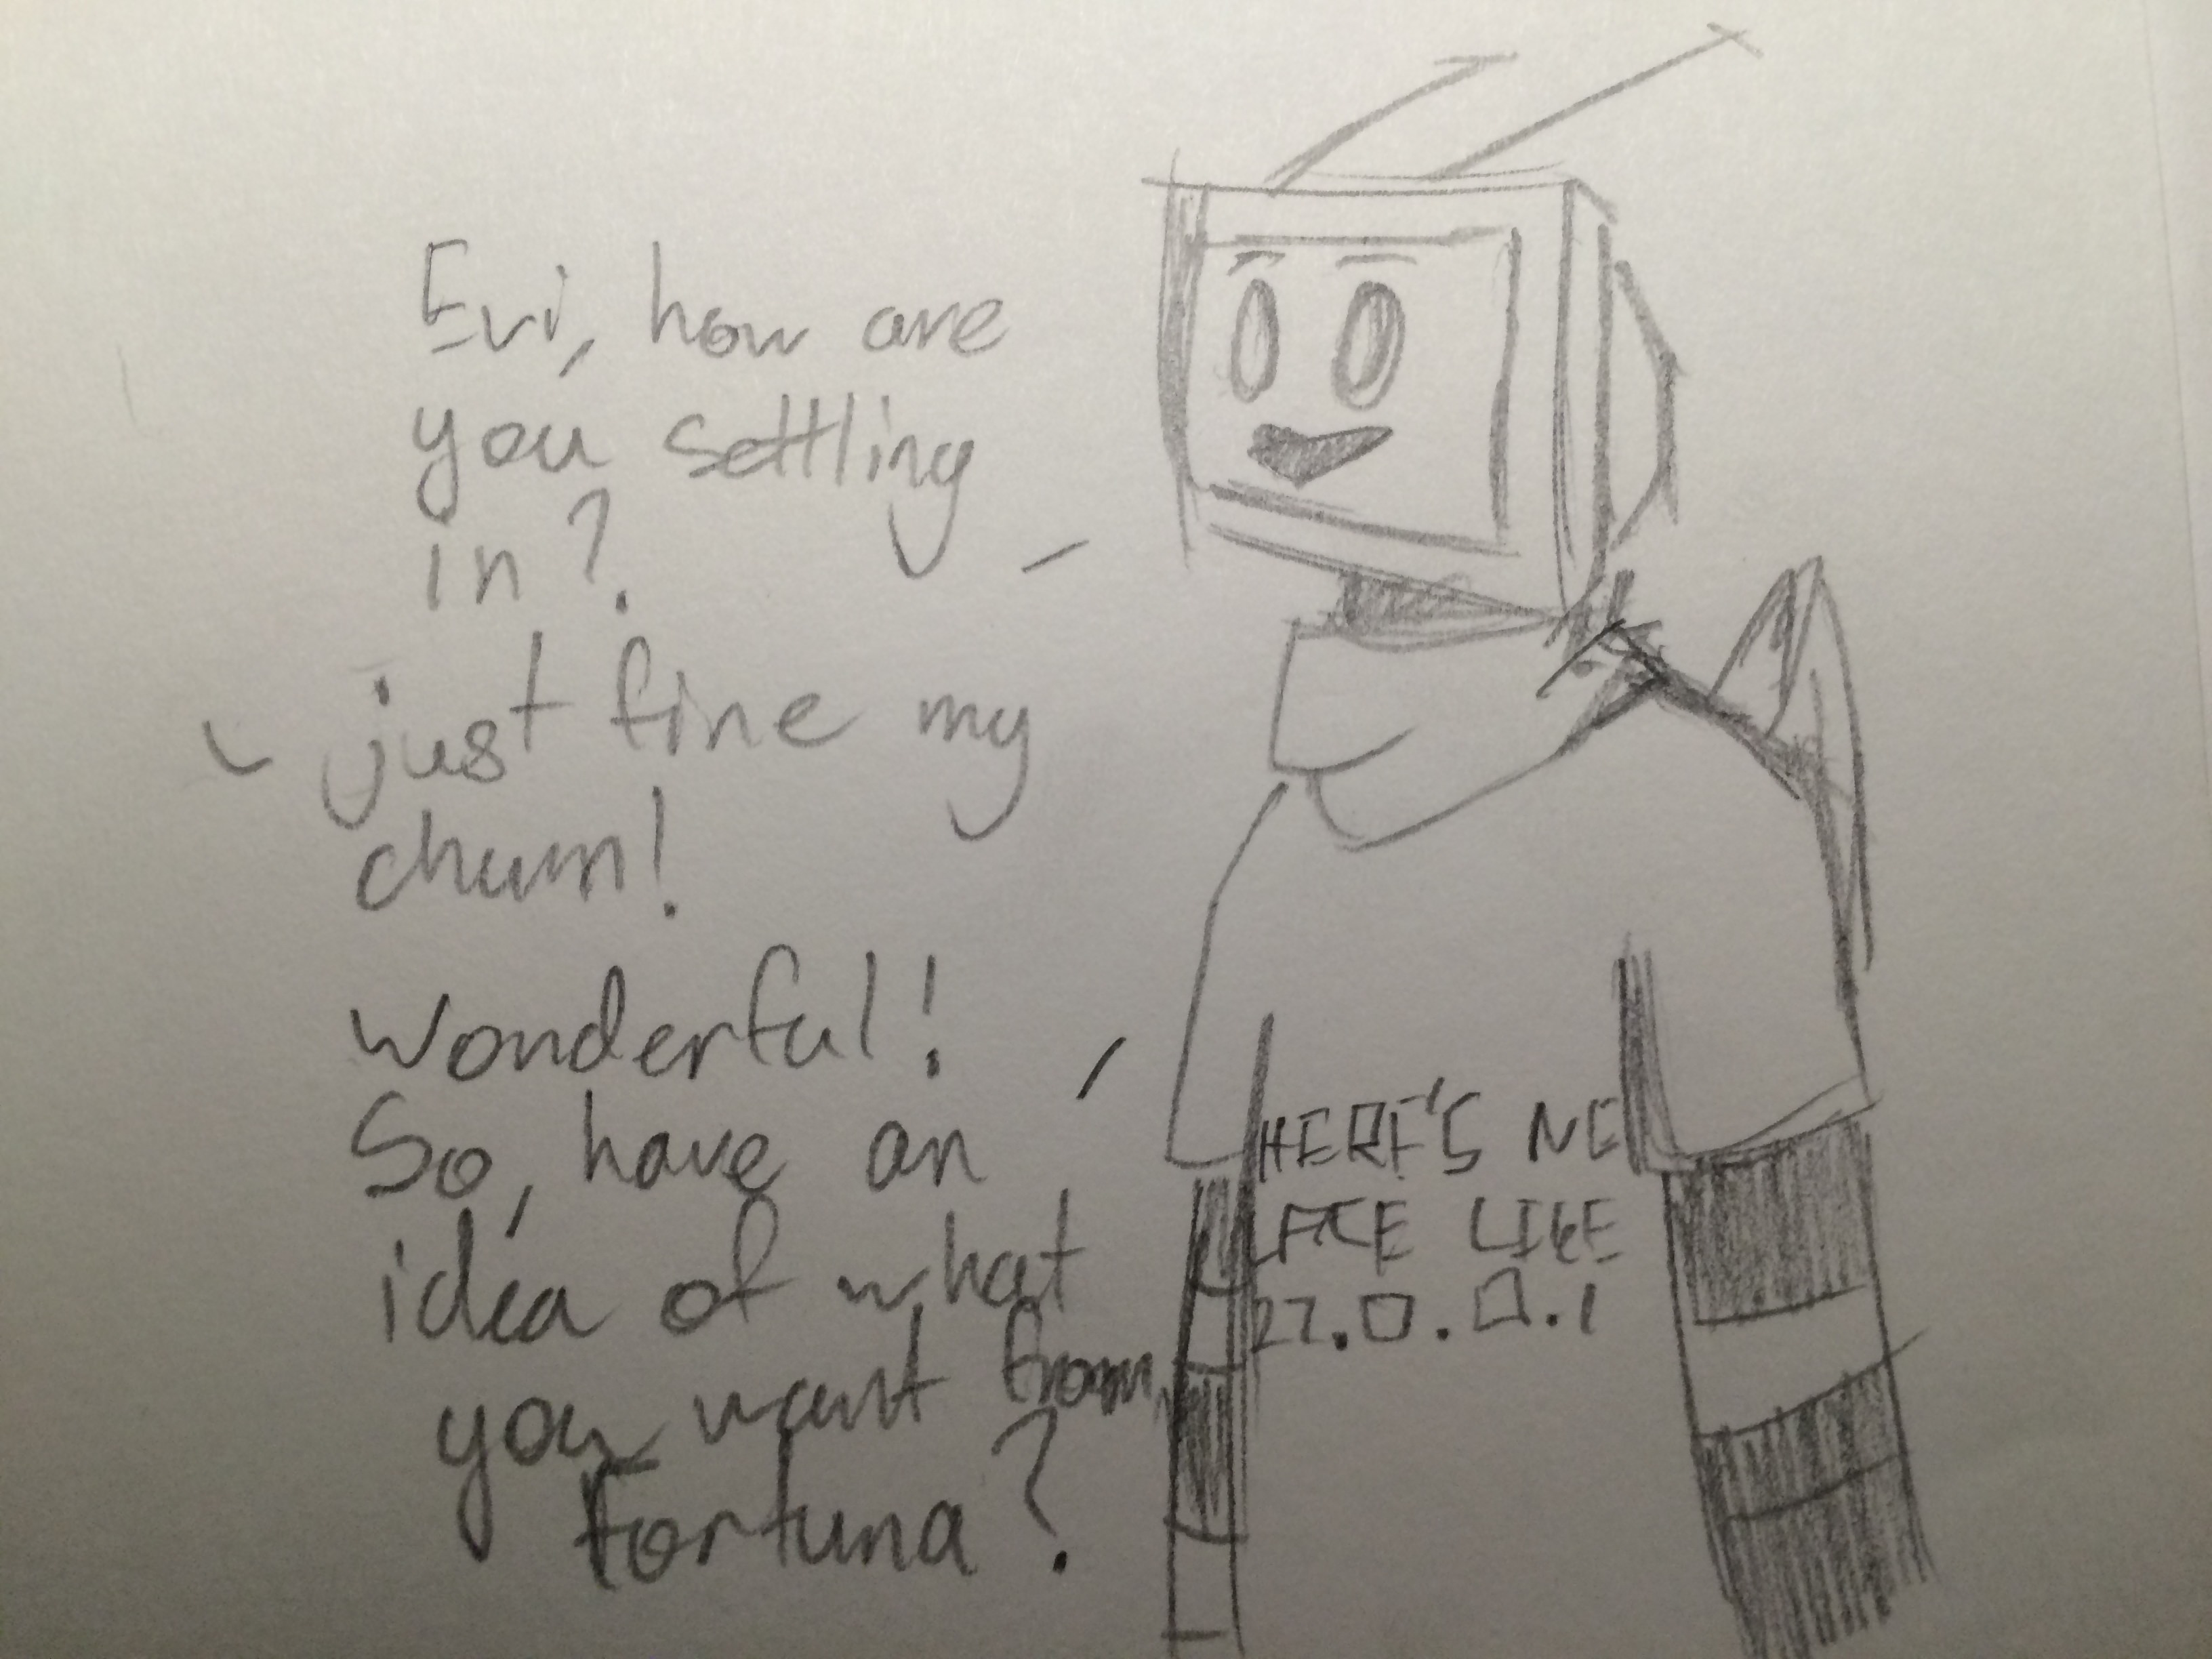 Evi, how are
you settling
in?
just fine my
chum!
Wonderful!
So, have an
idea of what
you want from
Fortuna?
HERE'S NO
LACE LIKE
27.0.0.1